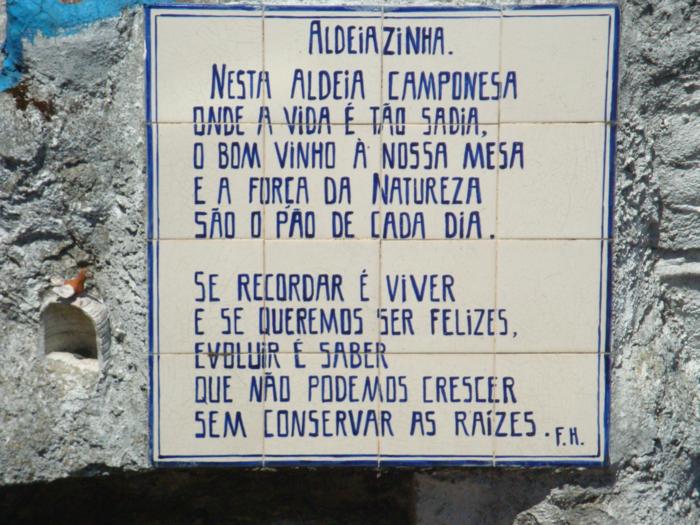 ALDEIAZINHA.
NESTA ALDEIA CAMPONESA
ONDE A VIDA É TÃO SADIA,
O BOM VINHO À NOSSA MESA
E A FORÇA DA NATUREZA
SÃO O PÃO DE CADA DIA.
SE RECORDAR É VIVER
E SE QUEREMOS SER FELIZES,
EVOLUIR É SABER
QUE NÃO PODEMOS CRESCER
SEM CONSERVAR AS RAÍZES.
F.H.